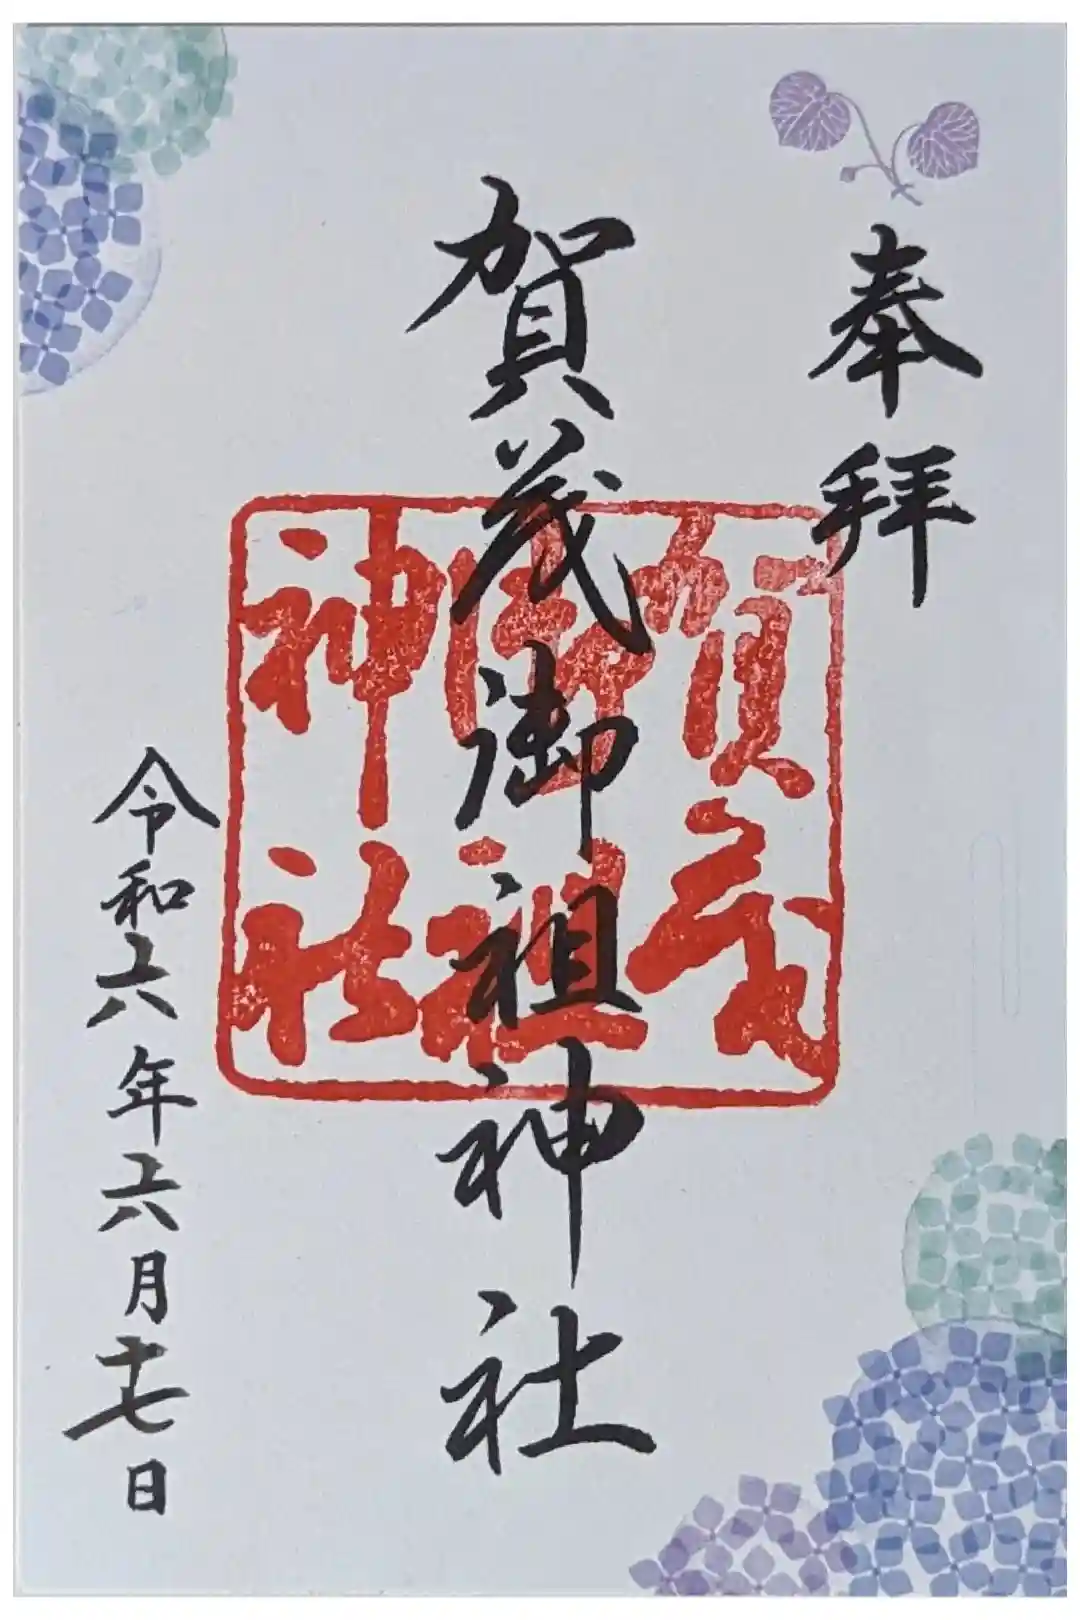 奉拝
賀茂御祖神社
賀茂
御祖
神社
令和六年六月十七日